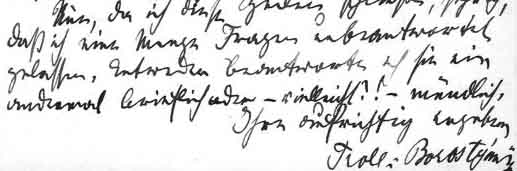 Nun, da ich diese Zeilen schließe,
daß ich eine Menge Fragen unbeantwortet
gelassen. Entweder beantworte ich sie ein
andermal brieflich oder – vielleicht?! – mündlich.
Ihre aufrichtig ergebene
Troll-Borostyáni